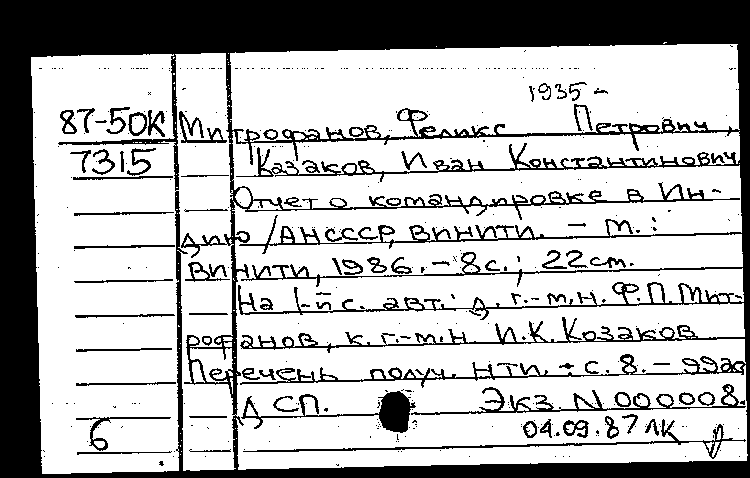 1935 -
87-5ОК Митрофанов, Феликс Петрович,
7315 Казаков, Иван Константинович
Отчет о командировке в Ин-
дию /АНСССР, ВИНИТИ. - М.:
ВИНИТИ, 1986. - 8с.; 22см.
На 1-й с. авт.: д. г.-м.н. Ф.П. Мит-
рофанов, к. г.-м.н. И.К. Козаков
Перечень получ. НТИ. : с. 8. -
ДСП. Экз. N 000008.
6 04.09.87 ЛК